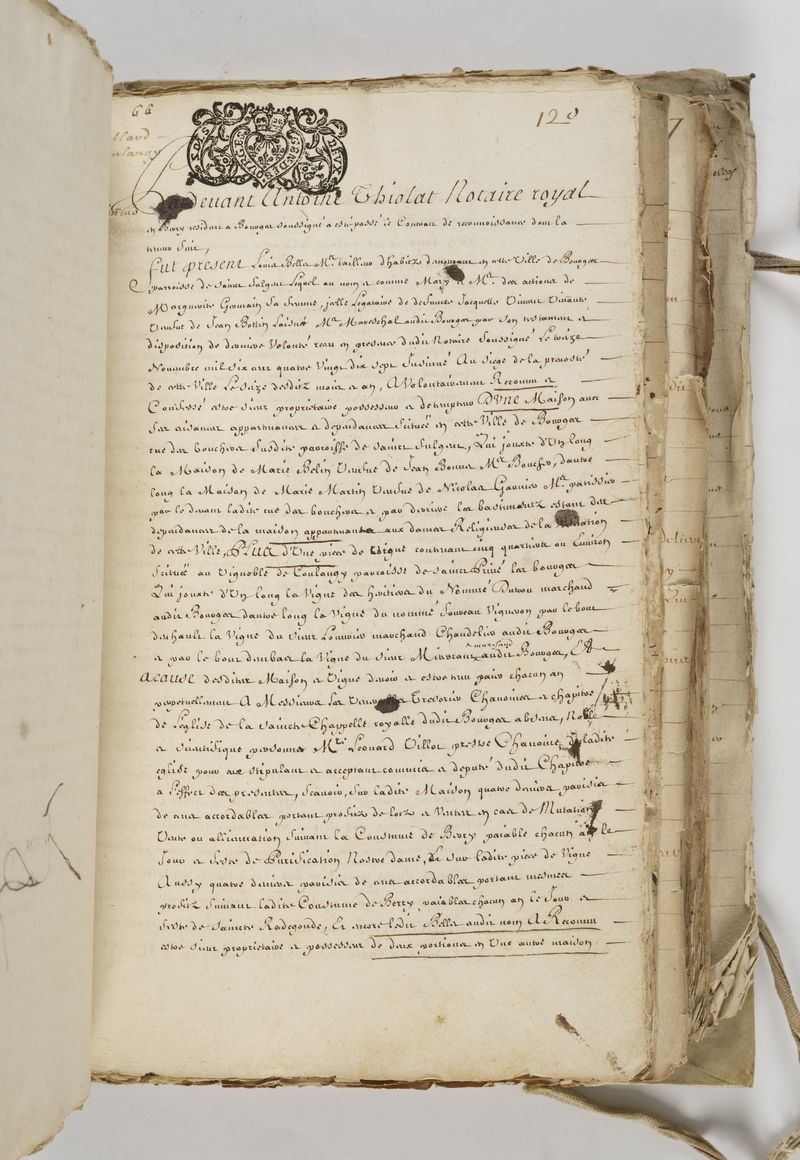 66
120
Pardevant Antoine Thiolat Notaire royal
en Berry residant a Bourges soussigné a esté passé le Contract de reconnoissance dont la
teneur suit,
Fut present Louis Bella Mre tailleur dhabitz demeurant en cette Ville de Bourges
parroisse de sainct fulgent Lequel au nom et comme Mary et Mre des actions de
Marguerite Germain sa femme, jcelle Legataire de deffuncte Jacquette vivante
Veufve de Jean Bottin Laisné Mre Mareschal audit Bourges par son testament et
disposition de derniere Volonté receu en presence dudit Notaire soussigné Le
Novembre mil six cens quatre Vingt dix sept Insinué Au siege de la prevosté
de cette Ville Le seize desditz mois et an, A Volontairement Reconnu et
Confessé estre sieur proprietaire possesseur et detempteur D'VNE Maison avec
ses aisances appartenances et dependances scituée en cette Ville de Bourges
rue des bouchers susdite parroisse de sainct fulgent, Qui jouxte d'Un long
la Maison de Marie Belin Veufve de Jean Bonnin Mre Boucher, dautre
long la Maison de Marie Martin Veufve de Nicolas Garnier Mre patissier
par le devant ladite rue des bouchers et par derriere les bastimentz estant des
dependances de la maison appartenante aux dames Religieuses de la Visitation
de cette Ville, PLUS d'Une piece de Vigne contenant cinq quartiers ou Environ
scituée au Vignoble de Coulangy parroisse de sainct Privé les bourges
Qui jouxte d'Un long la Vigne des heritiers du Nommé Dutour marchand
audit Bourges dautre long la Vigne du nommé Vigneron par le bout
denhault la Vigne du sieur marchand Chandelier audit Bourges
et par le bout denbas la Vigne du sieur marchand audit Bourges, Et
Acause desdites Maison et Vigne devoir et estre tenu paier chacun an
perpetuellement A Messieurs les Tresorier Chanoines et chapitre
de Leglise de la saincte Chappelle royalle dudit Bourges absens, Noble
et scientifique personne Mre Leonard Villot prestre Chanoine de ladite
eglise pour eux stipulant et acceptant commis et deputé dudit Chapitre
a l'effect des presentes, scavoir, sur ladite Maison quatre deniers parisis
de cens accordables portant profitz de lotz et Ventes en cas de Mutation
Vente ou allienation suivant la Coustume de Berry paiable chacun an le
Jour et feste de Purification Nostre dame, Et sur ladite piece de Vigne
Aussy quatre deniers parisis de cens accordables portant mesmes
profitz suivant ladite Coustume de Berry paiables chacun an le Jour et
feste de Saincte Radegonde, Et encore ledit Bella audit nom A Reconnu
estre sieur proprietaire et possesseur de deux portions en Une autre maison